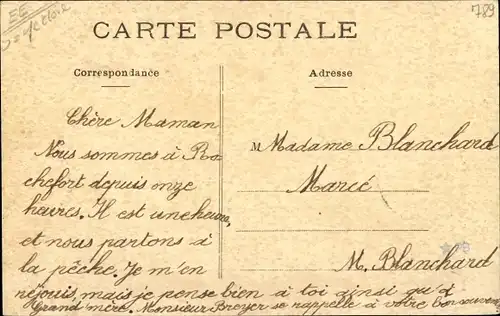 EE
789
CARTE POSTALE
Correspondance
Adresse
Chère Maman
Nous sommes à Ro
chefort depuis onze
heures. Il est une heure,
et nous partons à
la pêche. Je m'en
réjouis, mais je pense bien à toi ainsi qu'à
Grand'mère. Monsieur Breyer se rappelle à votre bon souvenir
M Madame Blanchard
Marcé
M. Blanchard